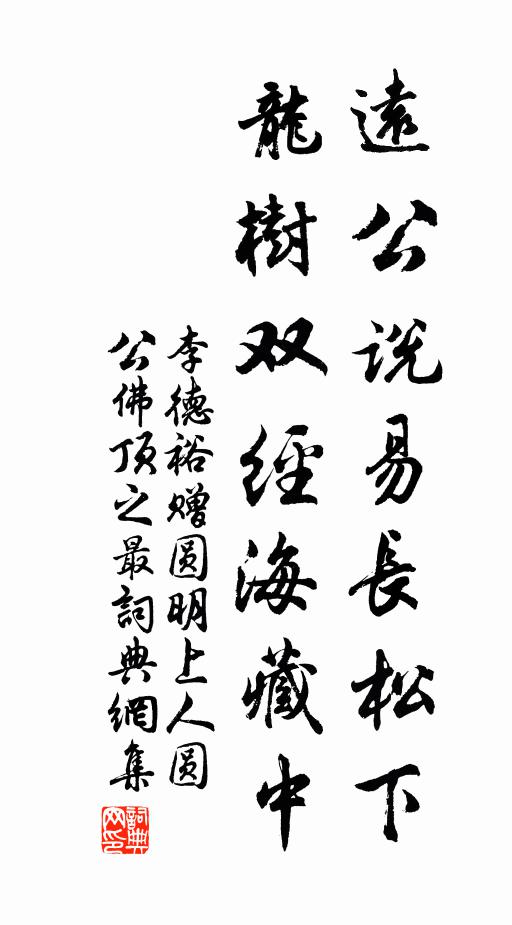 遠公说易長松下
龍樹双經海藏中
李德裕赠圆明上人圆
公佛顶之最詞典網集
詞典
网印